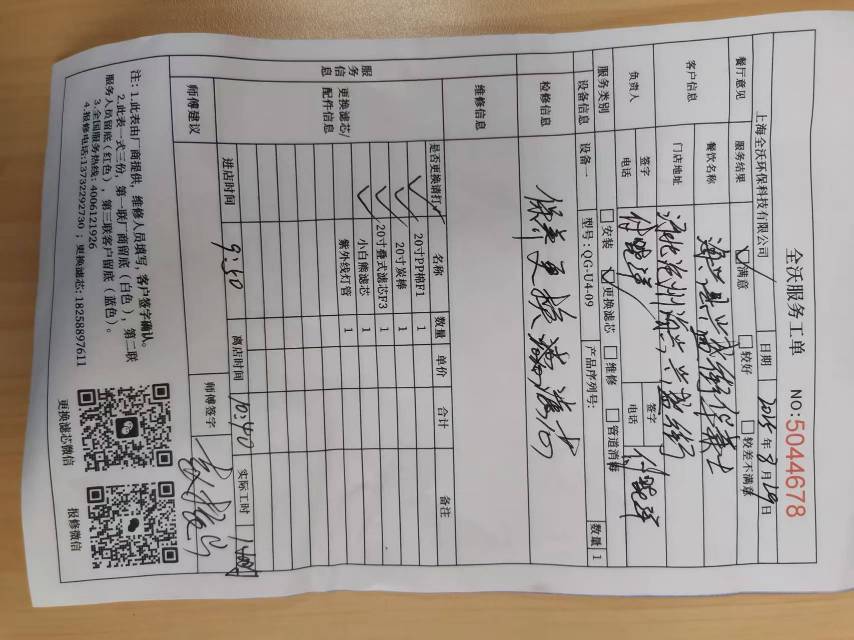 全沃服务工单 NO:5044678
上海全沃环保科技有限公司 日期 年 8 月 19 日
餐厅意见 服务结果 ☑满意 ☐较好 ☐较差不满意
客户信息 餐饮名称
门店地址 河北沧州 兴盛街
负责人 签字 付 签字 付
电话 电话
服务类别 ☐安装 ☑更换滤芯 ☐维修 ☐管道消毒
设备信息 设备一 型号:QG-U4-09 产品序列号: 数量 1
检修信息 保养更换滤芯
维修信息
服务信息 更换滤芯/配件信息 是否更换请打√ 名称 数量 单价 合计 备注
✓ 20寸PP棉F1 1
✓ 20寸炭棒 1
✓ 20寸叠式滤芯F3 1
✓ 小白熊滤芯 1
紫外线灯管 1
进店时间 9:50 离店时间 10:40 实际工时
师傅建议 师傅签字
注:1.此表由厂商提供,维修人员填写,客户签字确认。
2.此表一式三份,第一联厂商留底(白色),第二联
服务人员留底(红色),第三联客户留底(蓝色)。
3.全国服务热线:4006121926
4.报修电话:13732292730;更换滤芯:18258897611
更换滤芯微信 报修微信